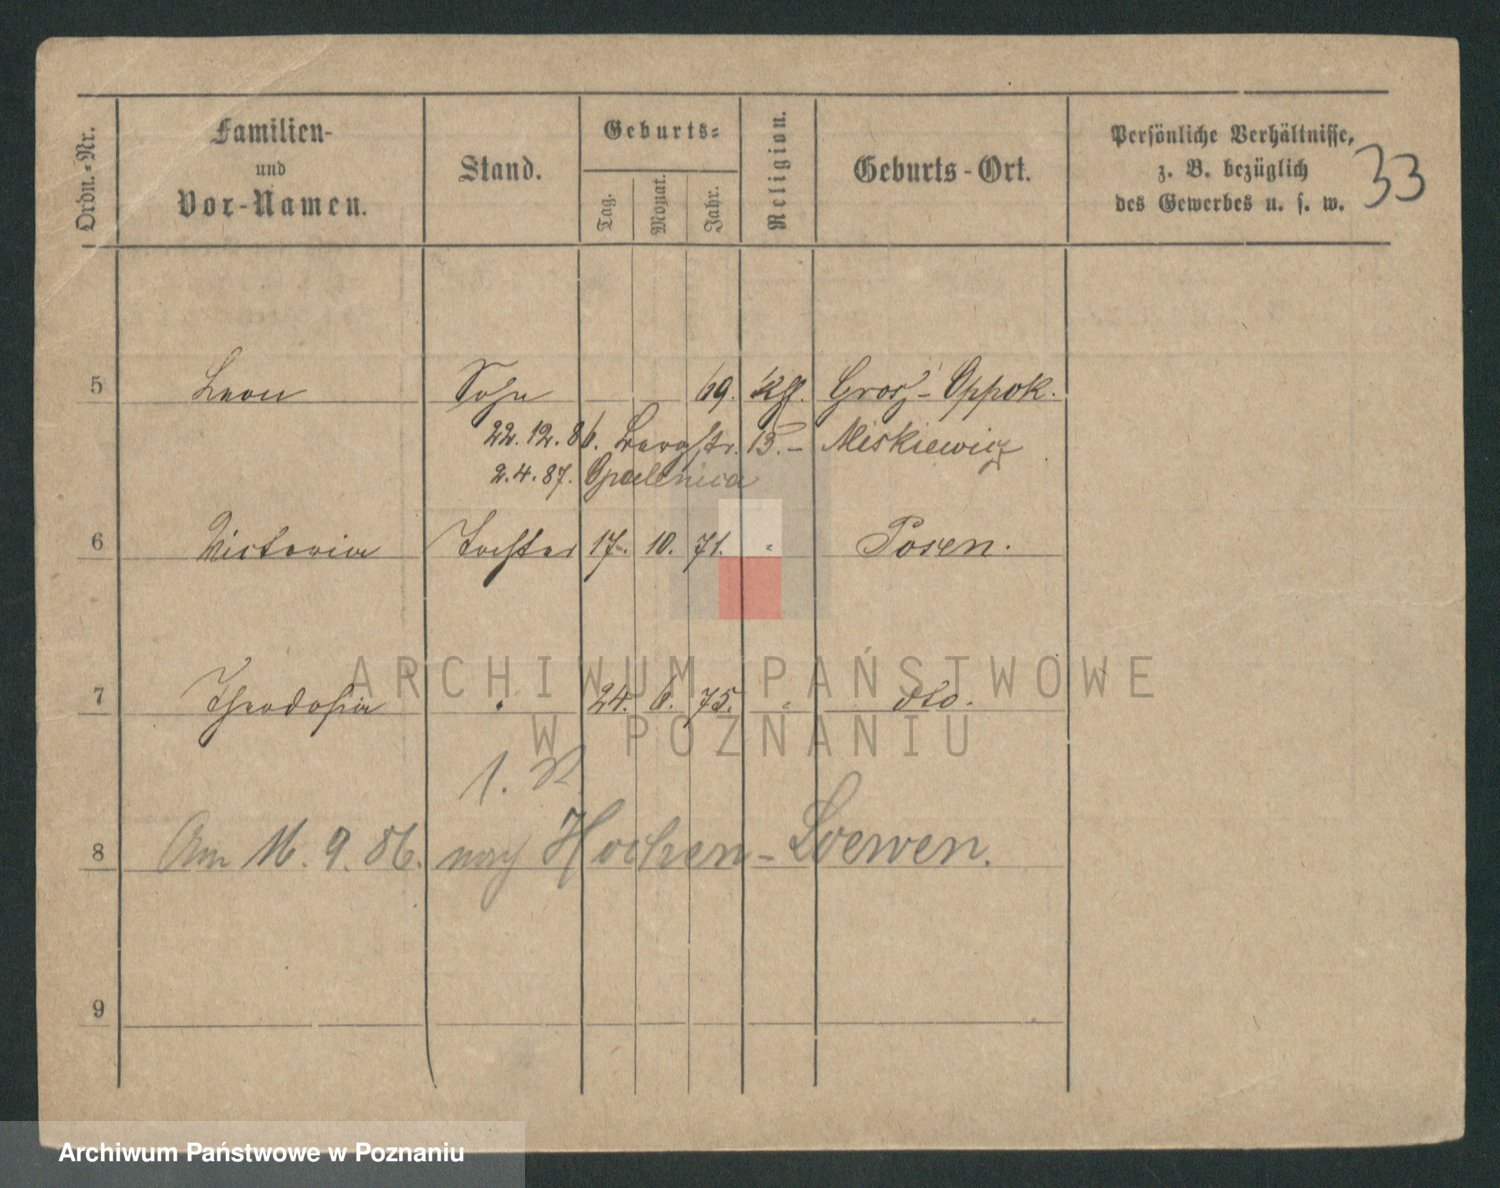 Ordn.-Nr.
Familien-
und
Vor-Namen.
Stand.
Geburts-
Tag.
Monat.
Jahr.
Religion.
Geburts-Ort.
Persönliche Verhältnisse,
z. B. bezüglich
des Gewerbes u. s. w.
33
5 Leon Sohn 69. kth. Gros-Oppok.
22.12.86. Bergstr. 13.- Miskiewicz
2.4.87. Opalenica
6 Victoria Tochter 17. 10. 71. " Posen.
7 Theodosia " 24. 6. 75. " dto.
8 Am 16.9.86. nach Hochen-Loewen.
9
ARCHIWUM PAŃSTWOWE
W POZNANIU
Archiwum Państwowe w Poznaniu